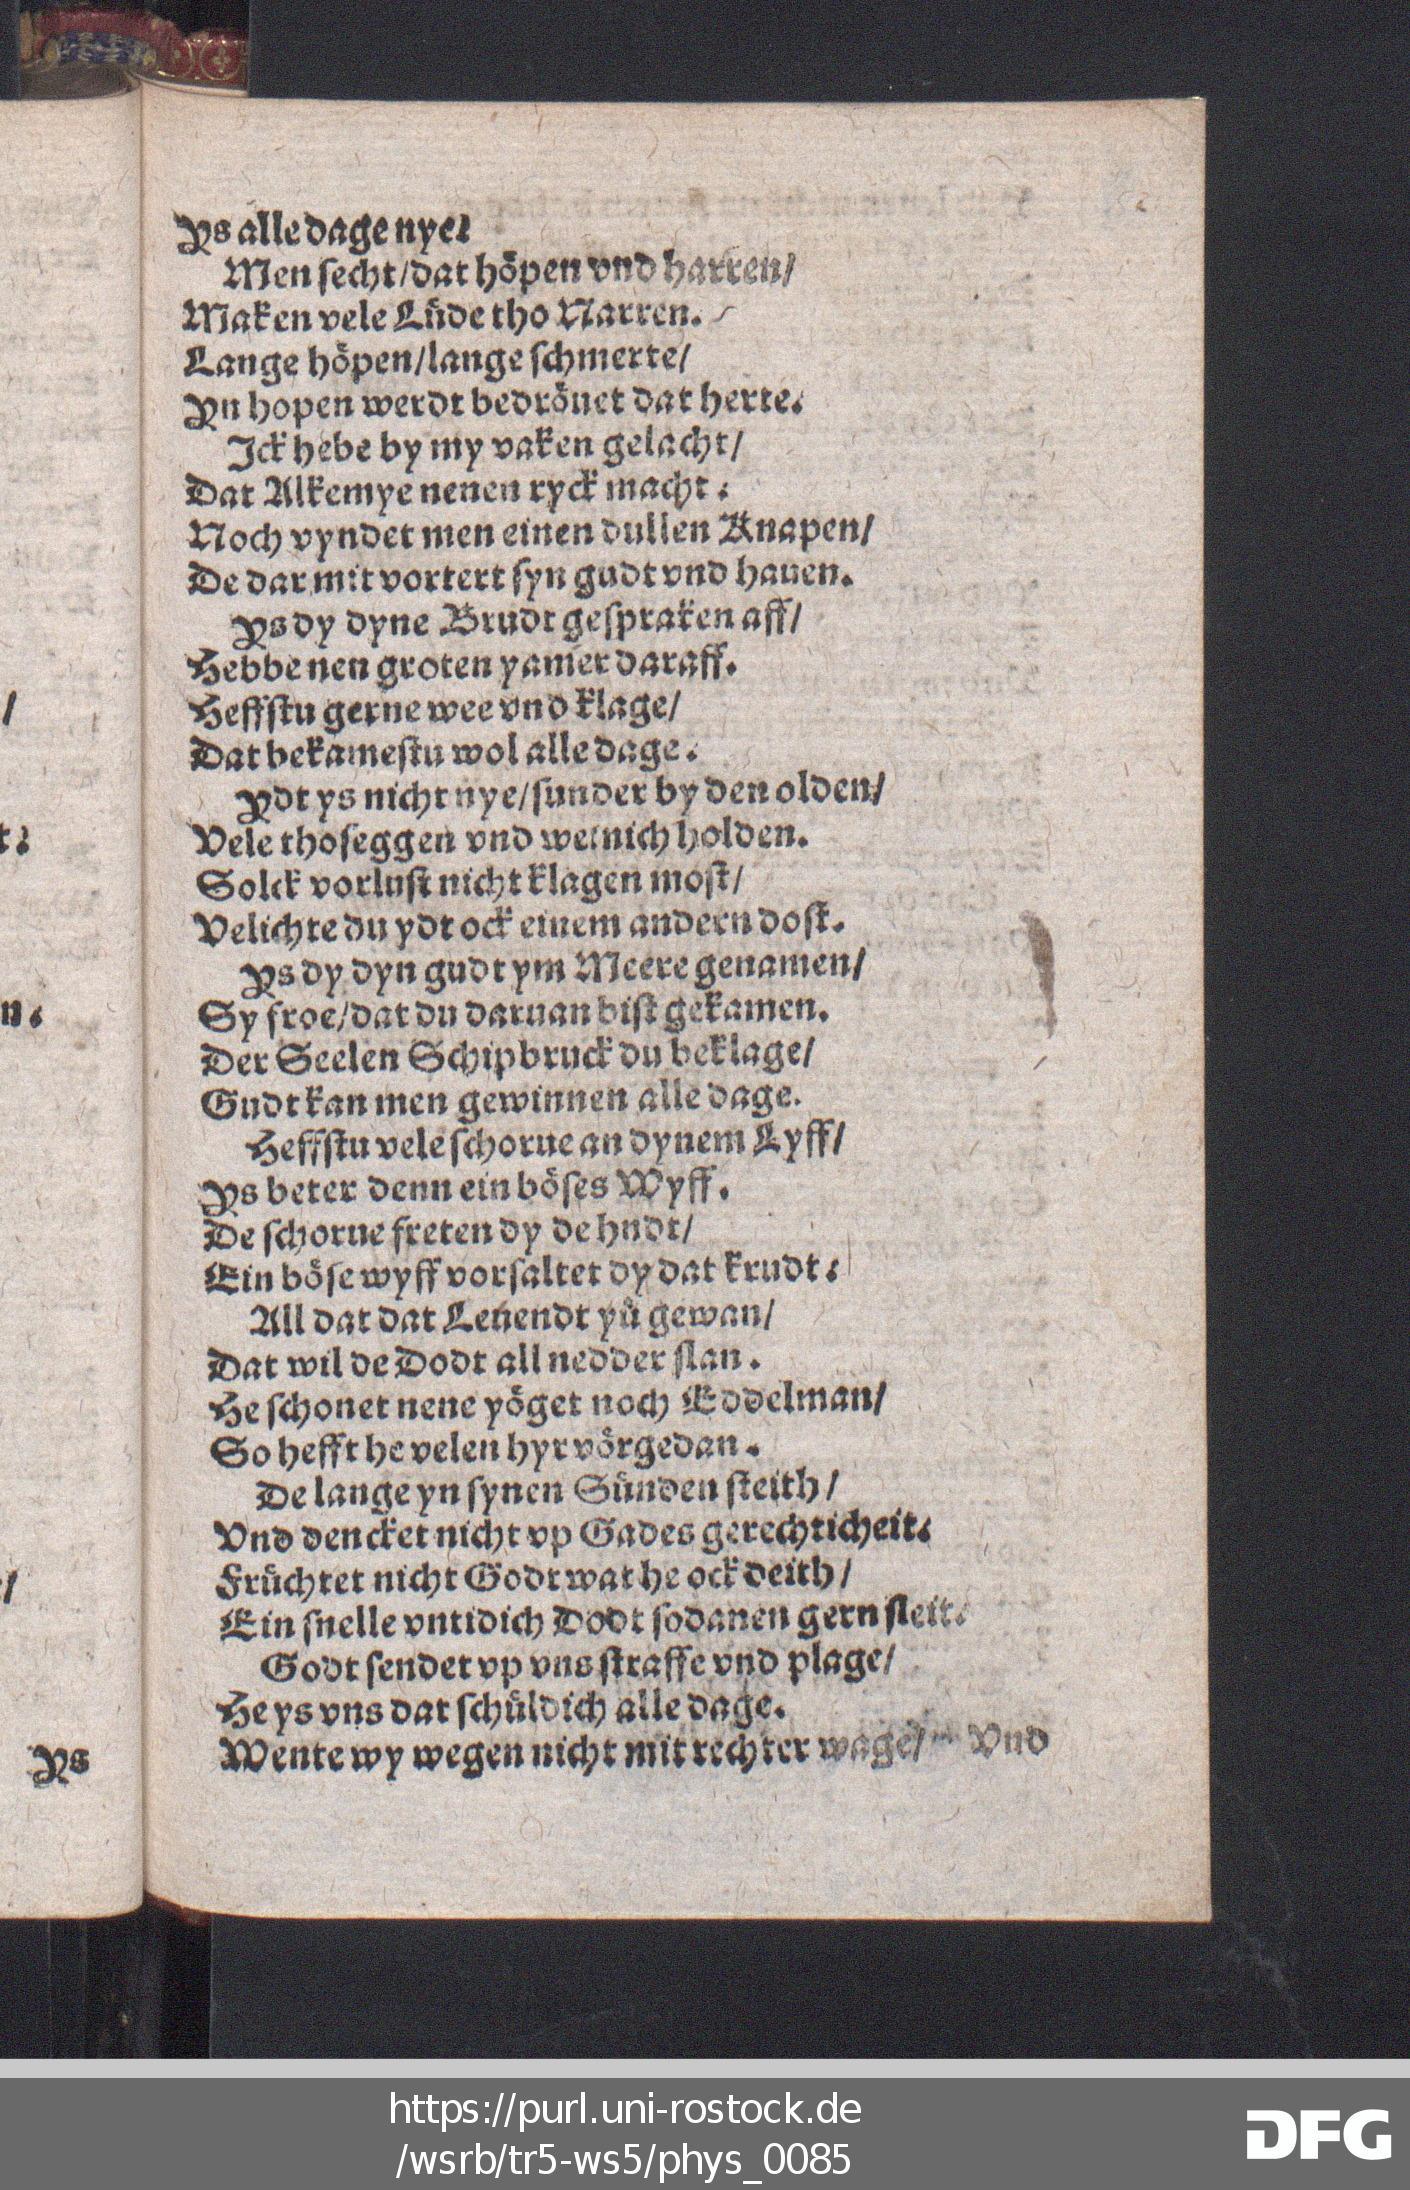 Ys alle dage nye.
Men secht/dat höpen vnd harren/
Maken vele Lüde tho Narren.
Lange höpen/lange schmerte/
Yn hopen werdt bedröuet dat herte.
Ick hebe by my vaken gelacht/
Dat Alkemye nenen ryck macht.
Noch vyndet men einen dullen Knapen/
De dar mit vortert syn gudt vnd hauen.
Ys dy dyne Brudt gespraken aff/
Hebbe nen groten yamer daraff.
Heffstu gerne wee vnd klage/
Dat bekamestu wol alle dage.
Ydt ys nicht nye/sunder by den olden/
Vele thoseggen vnd weinich holden.
Solck vorlust nicht klagen most/
Velichte du ydt ock einem andern dost.
Ys dy dyn gudt ym Meere genamen/
Sy froe/dat du daruan bist gekamen.
Der Seelen Schipbruck du beklage/
Gudt kan men gewinnen alle dage.
Heffstu vele schorue an dynem Lyff/
Ys beter denn ein böses Wyff.
De schorue freten dy de hudt/
Ein böse wyff vorsaltet dy dat krudt.
All dat dat Leuendt yü gewan/
Dat wil de Dodt all nedder slan.
He schonet nene yöget noch Eddelman/
So hefft he velen hyr vörgedan.
De lange yn synen Sünden steith/
Vnd dencket nicht vp Gades gerechticheit.
Früchtet nicht Godt wat he ock deith/
Ein snelle vntidich Dodt sodanen gern sleit.
Godt sendet vp vns straffe vnd plage/
He ys vns dat schüldich alle dage.
Wente wy wegen nicht mit rechter wage/
Vnd
Ys
https://purl.uni-rostock.de
/wsrb/tr5-ws5/phys_0085
DFG